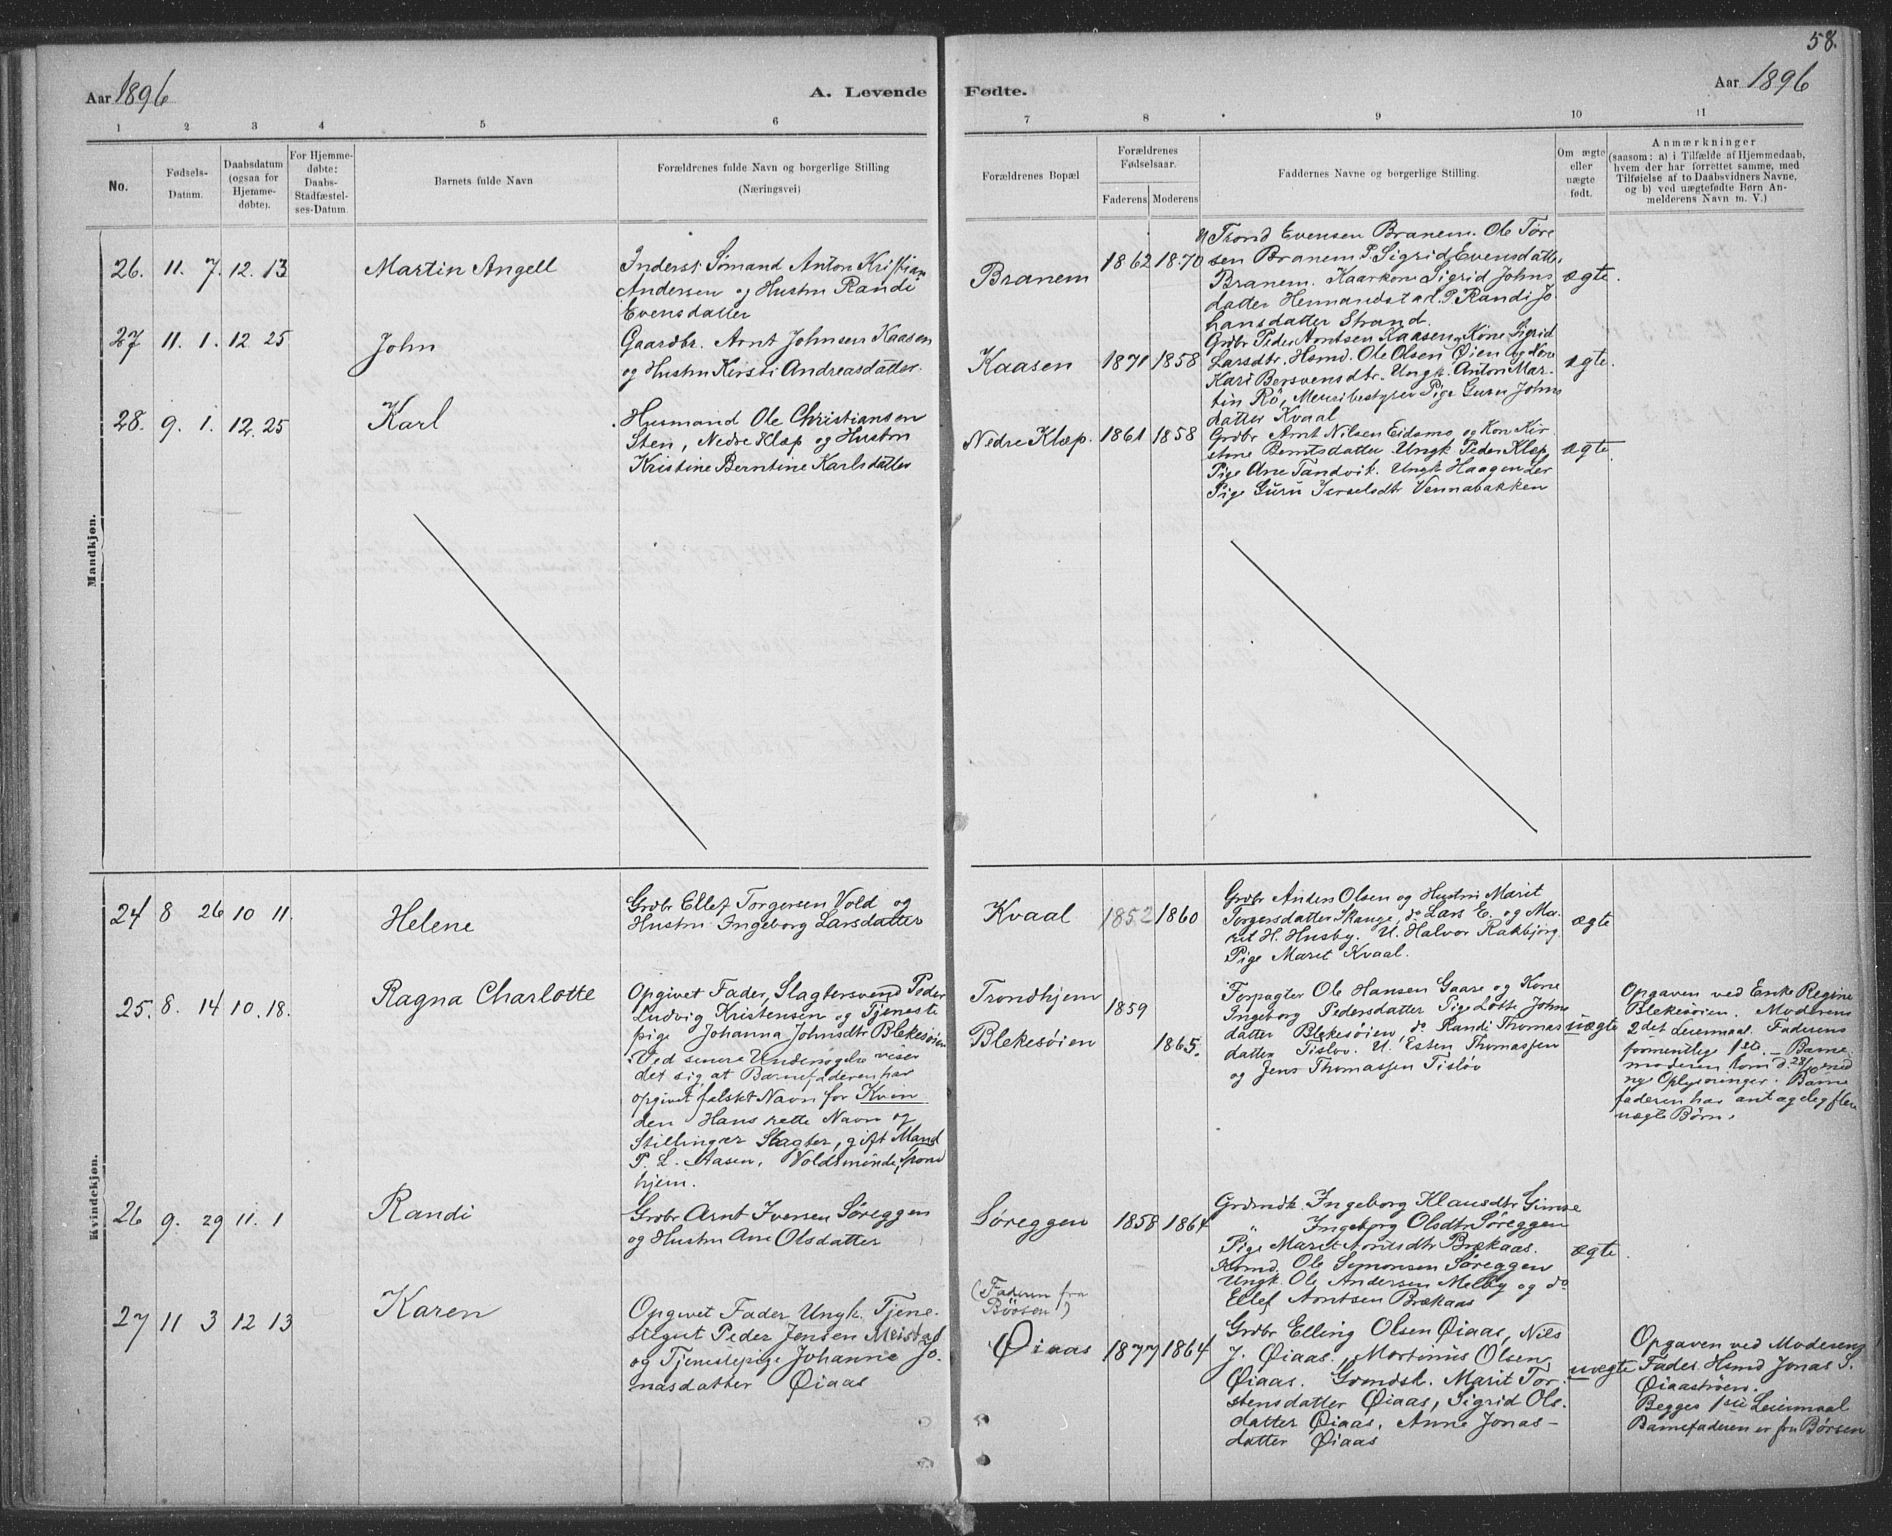 58.
Aar 1896
A. Levende
Fødte.
Aar 1896
1 2 3 4 5 6
7 8 9 10 11
No.
Fødsels-
Datum.
Daabsdatum
(ogsaa for
Hjemme-
døbte).
For Hjemme-
døbte:
Daabs-
Stadfæstel-
ses-Datum.
Barnets fulde Navn
Forældrenes fulde Navn og borgerlige Stilling
(Næringsvei)
Forældrenes Bopæl
Forældrenes
Fødselsaar.
Faderens Moderens
Faddernes Navne og borgerlige Stilling.
Om ægte
eller
uægte
født.
Anmærkninger
(saasom: a) i Tilfælde af Hjemmedaab,
hvem der har forrettet samme, med
Tilføielse af to Daabsvidners Navne,
og b) ved uægtefødte Børn An-
melderens Navn m. V.)
Mandkjøn.
26. 11. 7. 12. 13
Martin Angell
Inderst Sømand Anton Kristian
Andersen og Hustru Randi
Evensdatter
Branem
1862 1870
Trond Evensen Branem. Ole Tore
sen Branem P. Sigrid Evensdatter
Branem. Kaarkone Sigrid Johns
datter Hermandstad. P. Randi Jo
hansdatter Strand.
ægte.
27 11. 1. 12 25
John
Gaardbr. Arnt Johnsen Kaasen
og Hustru Kirsti Andreasdatter.
Kaasen
1871 1858
Grdbr Peder Arntsen Kaasen, Kone Sigrid
Larsdtr. Hsmd. Ole Olsen Øien og Kone
Kari Bersvensdtr. Ungk. Anton Mar-
tin Rø, Meieribestyrer Pige Guru Johns
datter Kvaal
ægte.
28. 9. 1. 12. 25
Karl
Husmand Ole Christiansen
Sten, Nedre Klæp og Hustru
Kristine Berntine Karlsdatter
Nedre Klæp.
1861 1858
Grdbr Arnt Nilsen Eidsmo og Kon Kir
stine Berntsdatter Ungk Peder Klæp,
Pige Ane Tandvik. Ungk Haagen Ler
Pige Guru Israelsdtr Vennabakken
ægte.
Kvindekjøn.
24 8 26 10 11.
Helene
Grdbr Ellef Torgersen Vold og
Hustru Ingeborg Larsdatter
Kvaal
1852 1860
Grdbr Anders Olsen og Hustru Marit
Torgersdatter Skauge, do Lars E. og Ma-
rit H. Husby. U. Halvor Rakbjørg.
Pige Marit Kvaal.
ægte
25. 8. 14 10. 18.
Ragna Charlotte
Opgivet Fader, Slagtersvend Peder
Ludvig Kristensen og Tjeneste
pige Johanna Johnsdtr Blekesøien
Ved senere Undersøgelse viser
det sig at Barnefaderen har
opgivet falskt Navn for Kvin
den Hans rette Navn og
Stilling er Slagter, gift Mand
P. L. Aasen, Voldsminde, Trond
hjem.
Trondhjem
Blekesøien
1859
1865.
Forpagter Ole Hansen Gaare og Kone
Ingeborg Pedersdatter Pige Lotte Johns
datter Blekesøien do Randi Thomas
datter Tisløv. U. Esten Thomassen
og Jens Thomassen Tisløv
uægte
Opgaven ved Enke Regine
Blekesøien. Moderens
2det Leiermaal. Faderens
formentlige 1ste. - Barne
moderen kom d. 28/10 med
nye Oplysninger. Barne
faderen har antagelig flere
uægte Børn.
26 9. 29 11. 1
Randi
Grdbr Arnt Iversen Søreggen
og Hustru Ane Olsdatter
Søreggen
1858 1864
Grdmdk. Ingeborg Klausdtr Gimse
" Ingebjrg Olsdtr Søreggen
Pige Marit Arntsdtr Brekaas.
Hsmd. Ole Simonsen Søreggen
Ungk. Ole Andersen Melby og do
Ellef Arntsen Brekaas
ægte.
27 11 3 12 13
Karen
Opgivet Fader Ungk. Tjene-
stegut Peder Jensen Meistad
og Tjenestepige Johanne Jo-
nasdatter Øiaas
(Faderen fra
Børsen)
Øiaas
1877 1864
Grdbr Elling Olsen Øiaas, Nils
J. Øiaas, Martinus Olsen
Øiaas. Grmdsk. Marit Tor-
stensdatter Øiaas, Sigrid Ols-
datter Øiaas, Anne Jonas-
datter Øiaas
uægte
Opgaven ved Moderens
Fader Hsmd Jonas S.
Øiaastrøen.
Begges 1ste Leiermaal
Barnefaderen er fra Børsen